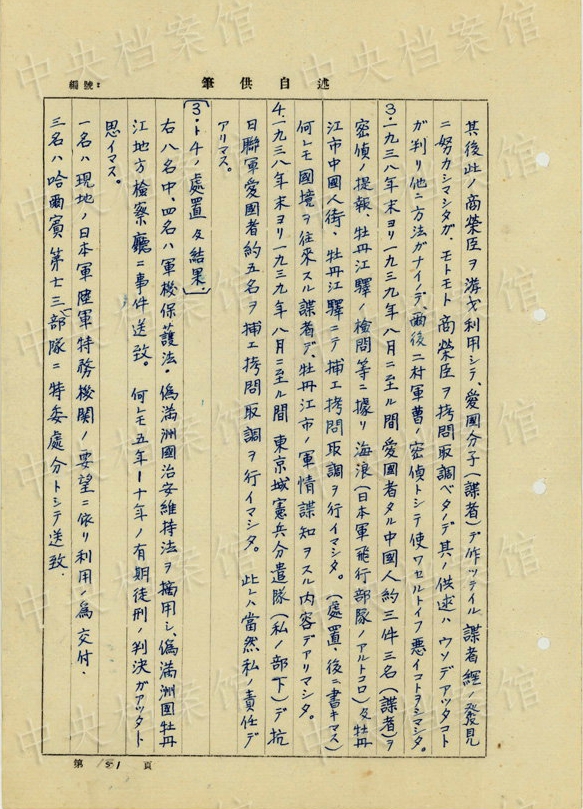 編號:
筆供述自
其後此ノ商榮臣ヲ游弋利用シテ、愛國分子(諜者)デ作ツテイル諜者經ノ發見
ニ努カシマシタガ、モトモト商榮臣ヲ拷問取調ベタノデ其ノ供述ハウソデアツタコト
ガ判リ他ニ方法ガナイノデ、爾後ニ村軍曹ノ密偵トシテ使ワセルトイフ悪イコトヲシマシタ。
3.一九三八年末ヨリ一九三九年八月ニ至ル間愛國者タル中國人約三件三名(諜者)ヲ
密偵ノ提報、牡丹江驛ノ檢問等ニ據リ海浪(日本軍飛行部隊ノアルトコロ)及牡丹
江市中國人街、牡丹江驛ニテ捕エ拷問取調ヲ行イマシタ。(處置、後ニ書キマス)
何レモ國境ヲ往來スル諜者デ、牡丹江市ノ軍情諜知ヲスル内容デアリマシタ。
4.一九三八年末ヨリ一九三九年八月ニ至ル間東京城憲兵分遣隊(私ノ部下)デ抗
日聯軍愛國者約五名ヲ捕エ拷問取調ヲ行イマシタ。此レハ當然私ノ責任デ
アリマス。
〔3.ト4.ノ處置及結果.〕
右八名中、四名ハ軍機保護法・偽満洲國治安維持法ヲ摘用シ偽満洲國牡丹
江地方檢察廳ニ事件送致。何レモ五年ー十年ノ有期徒刑ノ判決ガアツタト
思イマス。
一名ハ現地ノ日本軍陸軍特務機関ノ要望ニ依リ利用ノ爲交付.
三名ハ哈爾賓第七三一部隊ニ特委處分トシテ送致.
第 頁
中央档案馆